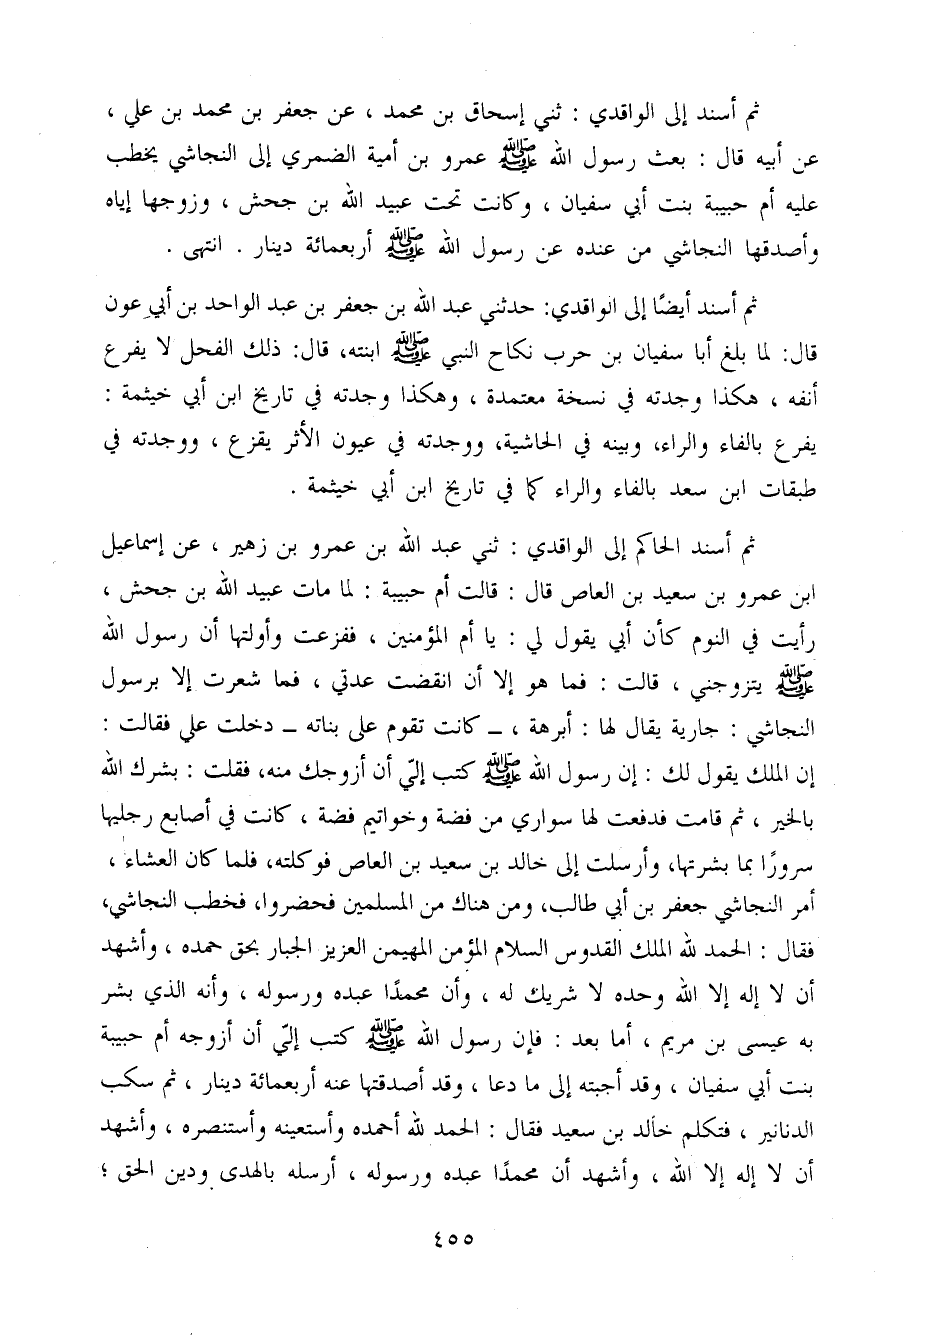 ثم أسند إلى الواقدي : ثني إسحاق بن محمد ، عن جعفر بن محمد بن علي ،
عن أبيه قال : بعث رسول الله ﷺ عمرو بن أمية الضمري إلى النجاشي يخطب
عليه أم حبيبة بنت أبي سفيان ، وكانت تحت عبيد الله بن جحش ، وزوجها إياه
وأصدقها النجاشي من عنده عن رسول الله ﷺ أربعمائة دينار . انتهى .
ثم أسند أيضًا إلى الواقدي: حدثني عبد الله بن جعفر بن عبد الواحد بن أبي عون
قال: لما بلغ أبا سفيان بن حرب نكاح النبي ﷺ ابنته، قال: ذلك الفحل لا يفرع
أنفه ، هكذا وجدته في نسخة معتمدة ، وهكذا وجدته في تاريخ ابن أبي خيثمة :
يفرع بالفاء والراء، وبينه في الحاشية، ووجدته في عيون الأثر يقزع ، ووجدته في
طبقات ابن سعد بالفاء والراء كما في تاريخ ابن أبي خيثمة .
ثم أسند الحاكم إلى الواقدي : ثني عبد الله بن عمرو بن زهير ، عن إسماعيل
ابن عمرو بن سعيد بن العاص قال : قالت أم حبيبة : لما مات عبيد الله بن جحش ،
رأيت في النوم كأن أبي يقول لي : يا أم المؤمنين ، ففزعت وأولتها أن رسول الله
ﷺ يتزوجني ، قالت : فما هو إلا أن انقضت عدتي ، فما شعرت إلا برسول
النجاشي : جارية يقال لها : أبرهة ، ــ كانت تقوم على بناته ــ دخلت علي فقالت :
إن الملك يقول لك : إن رسول الله ﷺ كتب إليّ أن أزوجك منه، فقلت : بشرك الله
بالخير ، ثم قامت فدفعت لها سواري من فضة وخواتيم فضة ، كانت في أصابع رجليها
سرورًا بما بشرتها، وأرسلت إلى خالد بن سعيد بن العاص فوكلته، فلما كان العشاء ،
أمر النجاشي جعفر بن أبي طالب، ومن هناك من المسلمين فحضروا، فخطب النجاشي،
فقال : الحمد لله الملك القدوس السلام المؤمن المهيمن العزيز الجبار بحق حمده ، وأشهد
أن لا إله إلا الله وحده لا شريك له ، وأن محمدًا عبده ورسوله ، وأنه الذي بشر
به عيسى بن مريم ، أما بعد : فإن رسول الله ﷺ كتب إليّ أن أزوجه أم حبيبة
بنت أبي سفيان ، وقد أجبته إلى ما دعا ، وقد أصدقتها عنه أربعمائة دينار ، ثم سكب
الدنانير ، فتكلم خالد بن سعيد فقال : الحمد لله أحمده وأستعينه وأستنصره ، وأشهد
أن لا إله إلا الله ، وأشهد أن محمدًا عبده ورسوله ، أرسله بالهدى ودين الحق ؛
٤٥٥